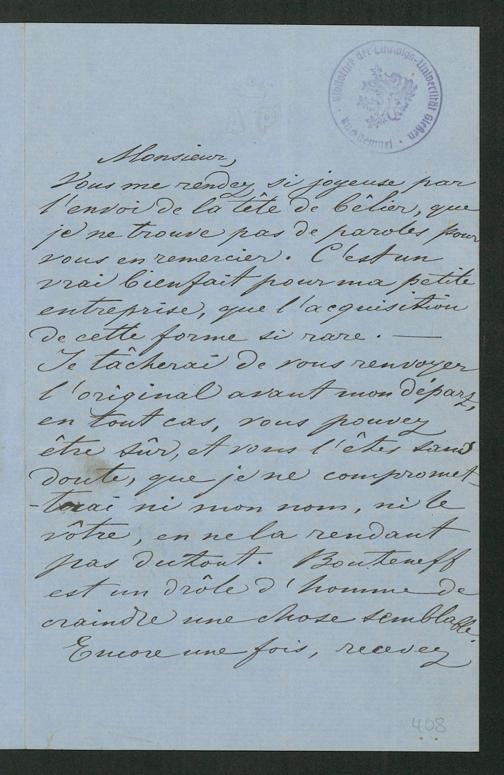 Bibliothek der Ludwigs-Universität Gießen
Monsieur,
Vous me rendez si joyeuse par
l'envoi de la tête de bélier, que
je ne trouve pas de paroles pour
vous en remercier. C'est un
vrai bienfait pour ma petite
entreprise, que l'acquisition
de cette forme si rare. —
Je tâcherai de vous renvoyer
l'original avant mon départ,
en tout cas, vous pouvez
être sûr, et vous l'êtes sans
doute, que je ne compromet-
-trai ni mon nom, ni le
vôtre, en ne la rendant
pas dutout. Bouteneff
est un drôle d'homme de
craindre une chose semblable.
Encore une fois, recevez
408